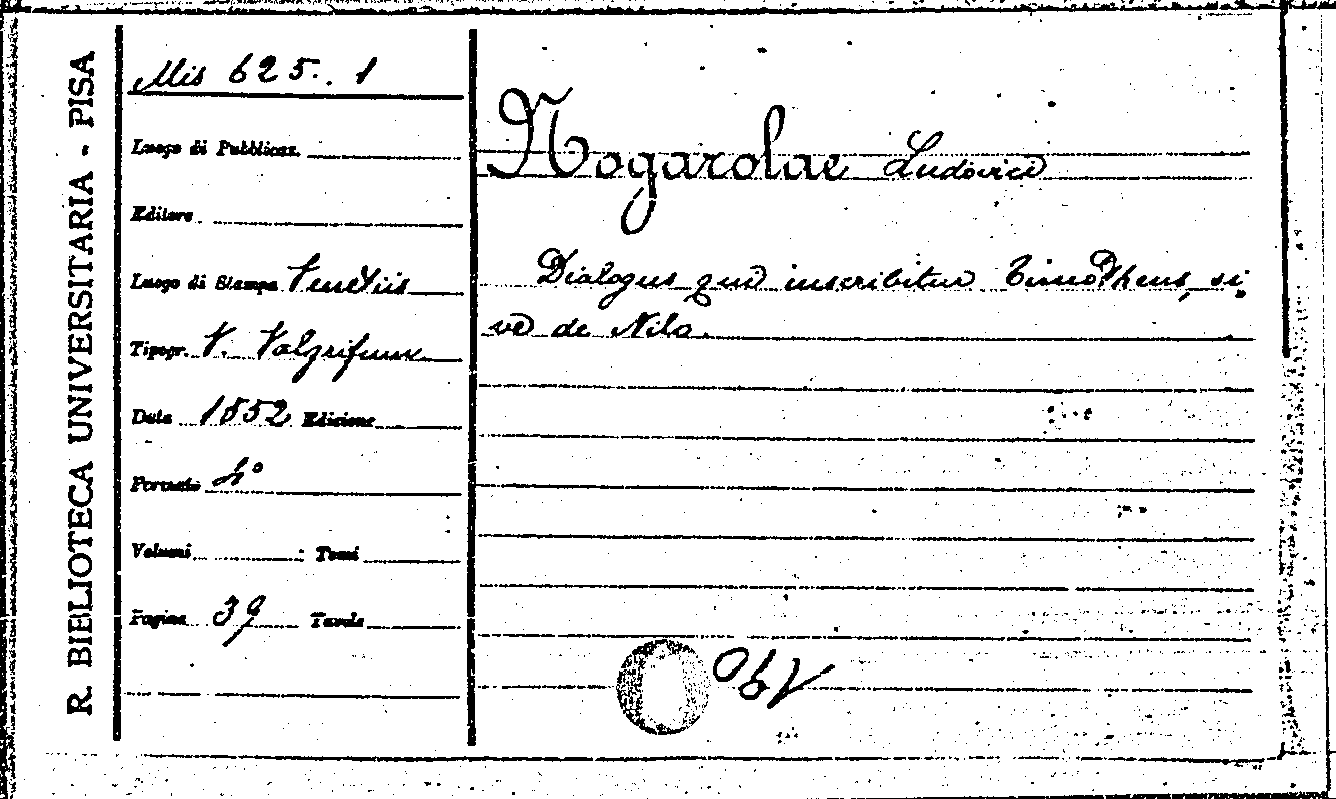 R. BIBLIOTECA UNIVERSITARIA - PISA
Mis 625. 1
Luogo di Pubblicaz.
Editore
Luogo di Stampa Venetiis
Tipogr. V. Valgrisium
Data 1552 Edizione
Formato 4°
Volumi Tomi
Pagine 39 Tavole
Nogarolae Ludovici
Dialogus qui inscribitur Timotheus, si-
ve de Nilo.